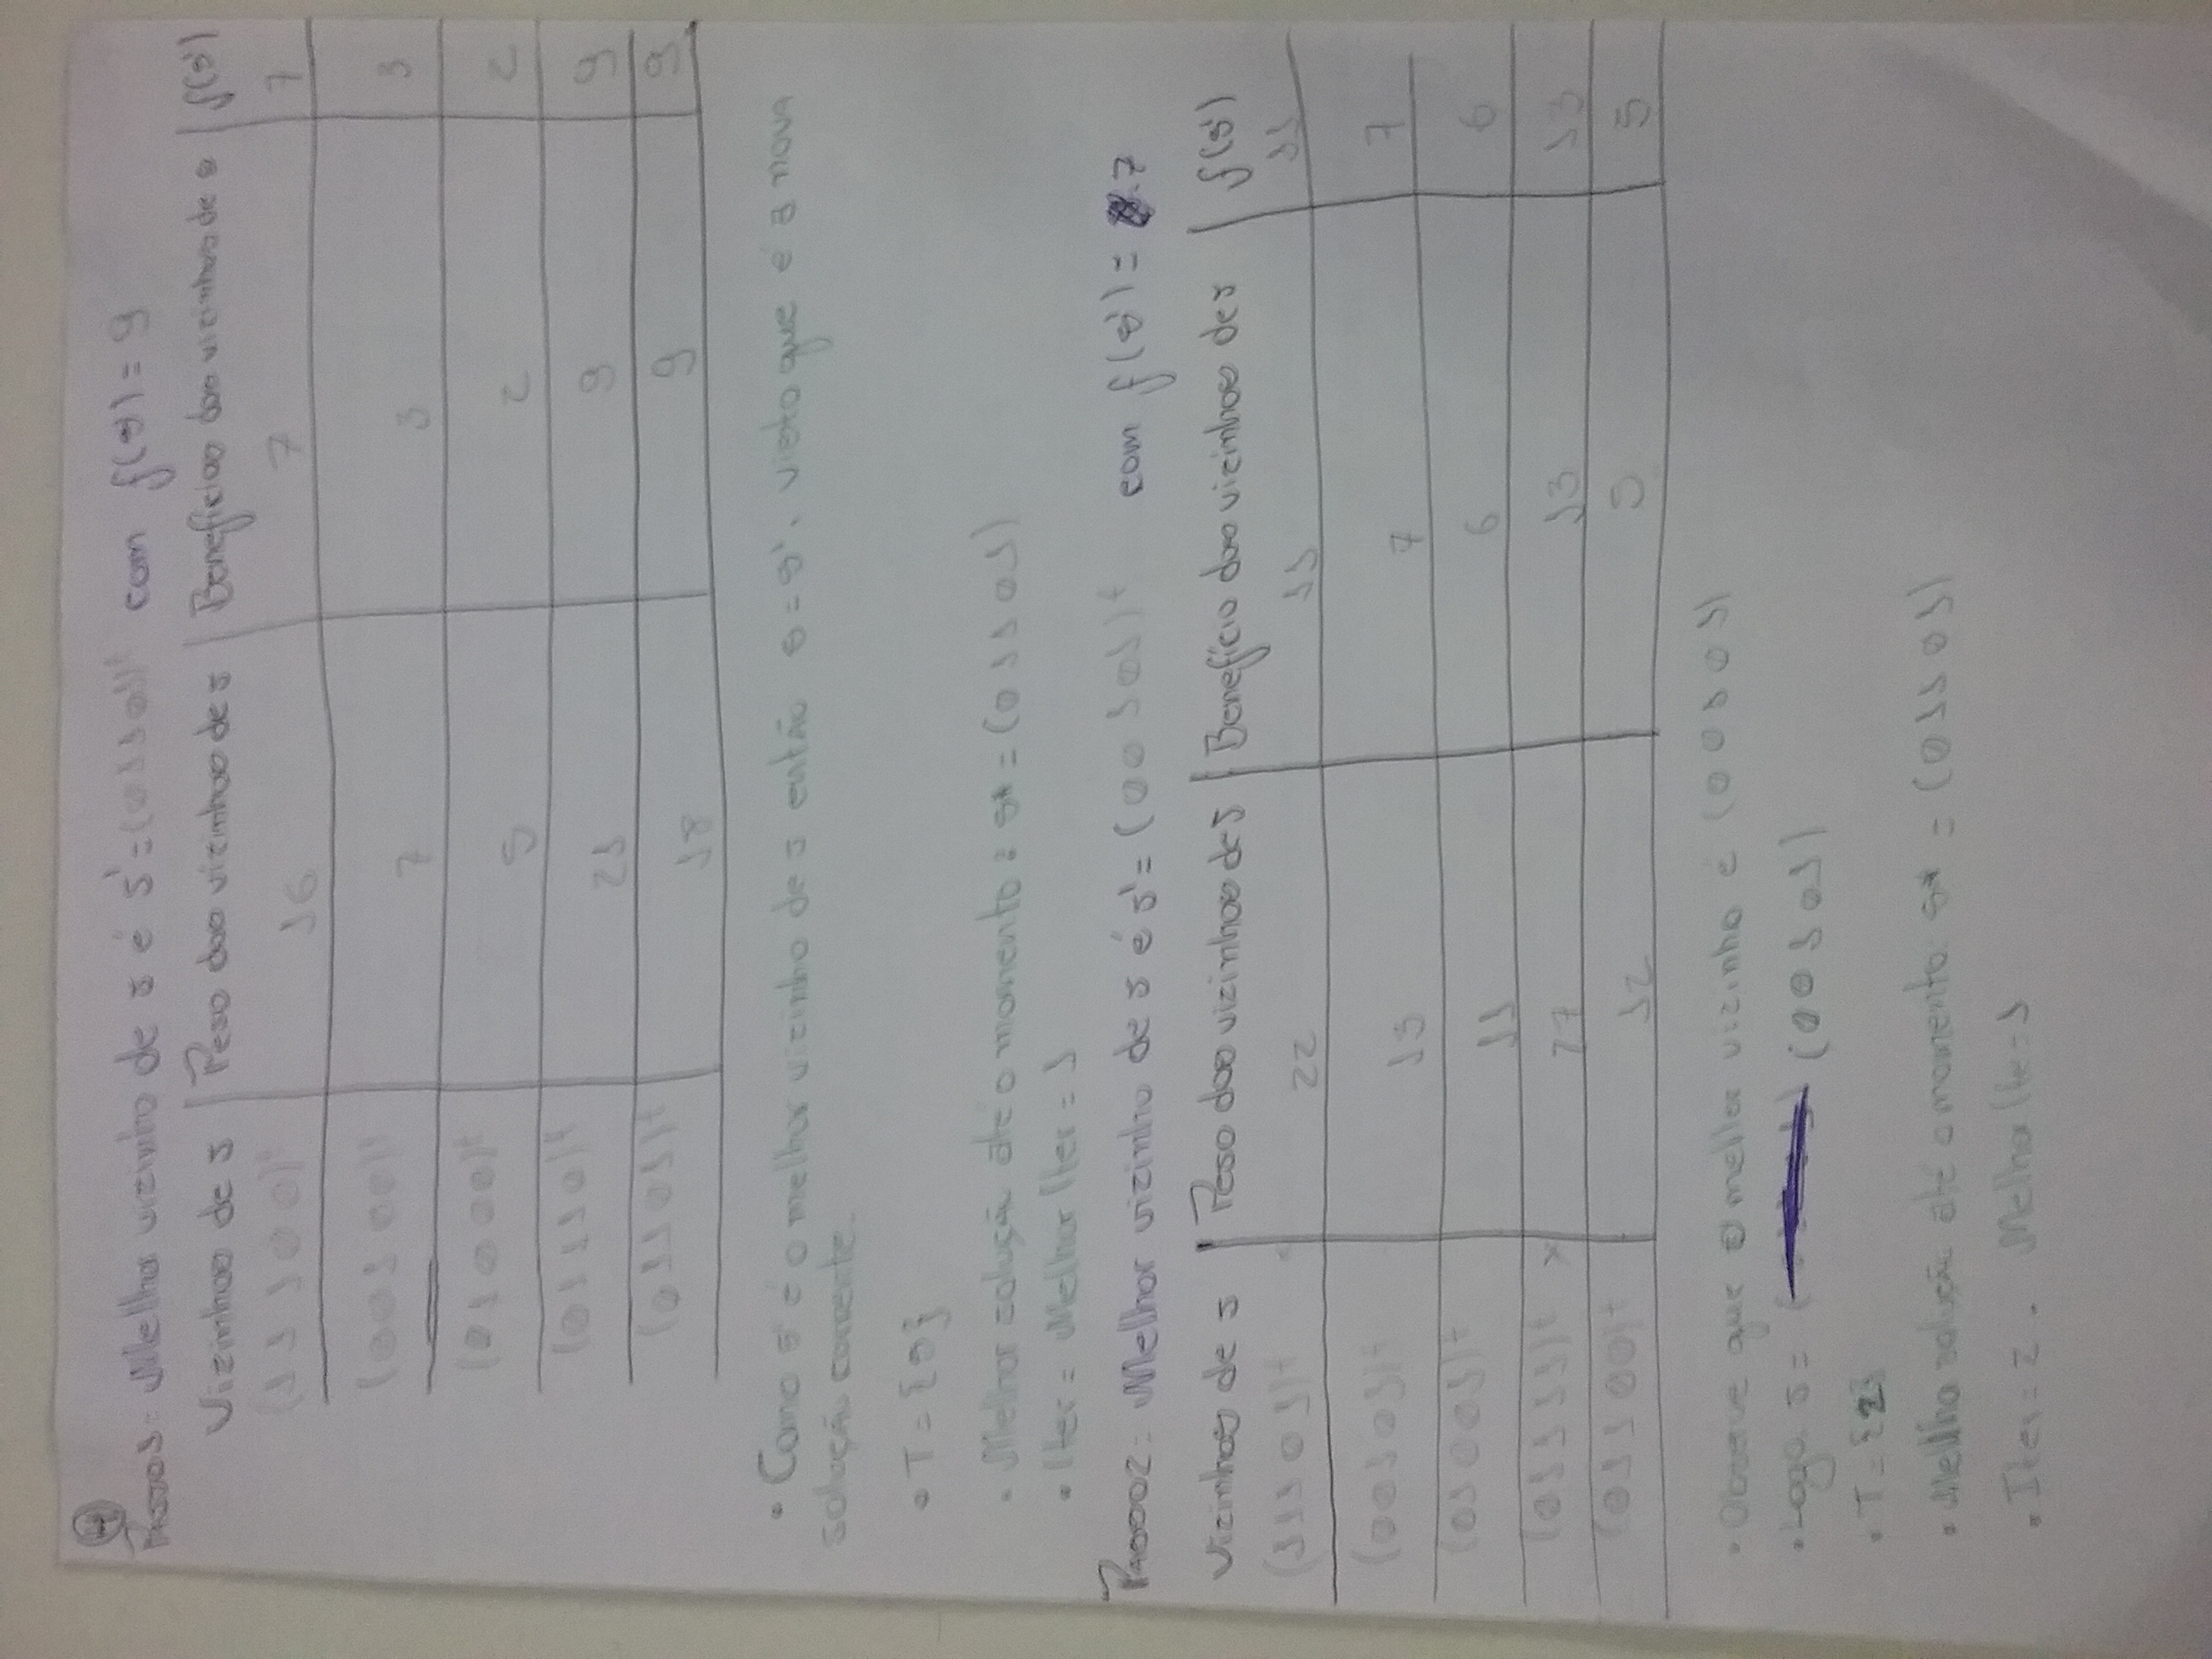 4
Passo1: Melhor vizinho de s é s'=(01101)t com f(s')=9
Vizinhos de s | Peso dos vizinhos de s | Benefícios dos vizinhos de s | f(s')
(11100)t 16 7 7
(00100)t 7 3 3
(01000)t 5 2 2
(01110)t 21 9 9
(01101)t 18 9 9
• Como s' é o melhor vizinho de s então s=s', visto que é a nova
solução corrente.
• T={5}
• Melhor solução até o momento: s* = (01101)
• Iter = Melhor Iter = 1
Passo2: Melhor vizinho de s é s'=(00101)t com f(s')= 7
Vizinhos de s | Peso dos vizinhos de s | Benefício dos vizinhos de s | f(s')
(11101)t 22 11 11
(00101)t 13 7 7
(01001)t 11 6 6
(01111)t x 27 13 13
(01100)t 12 5 5
• Observe que o melhor vizinho é (00101)
• Logo s= (00101)
• T={2}
• Melho solução até o momento: s* = (01101)
• Iter=2. Melhor Ite=1